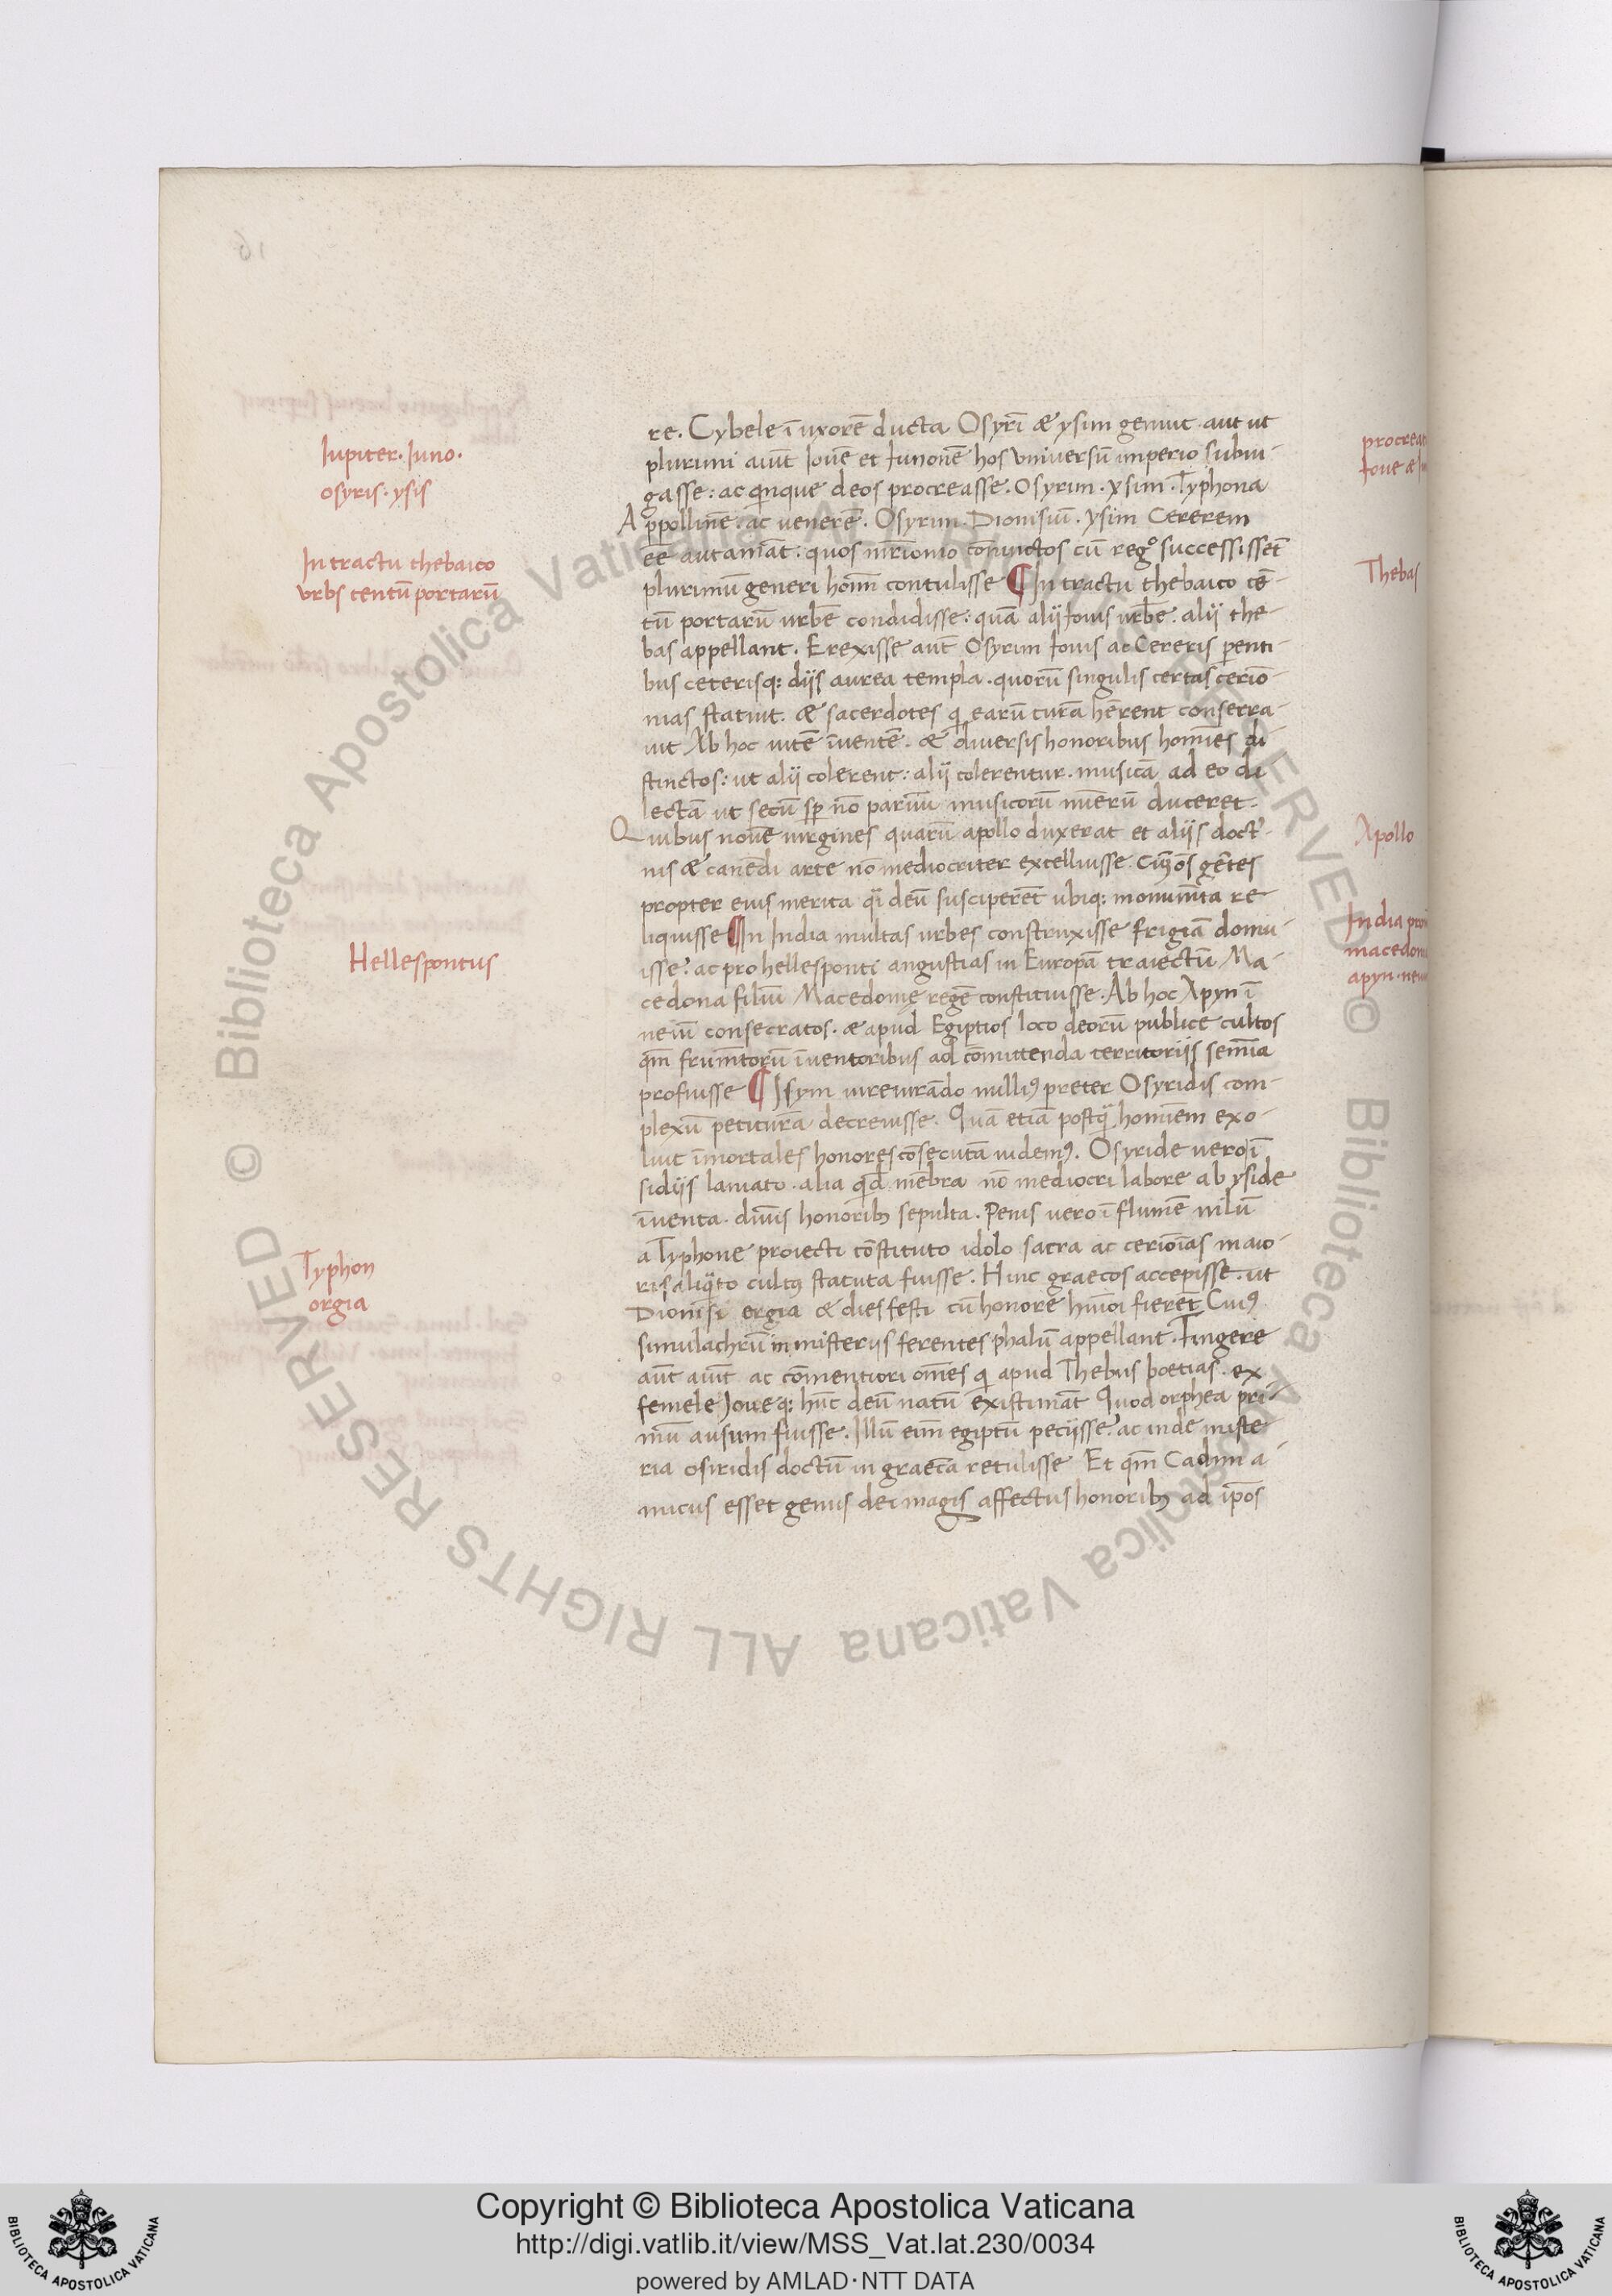 Iupiter. Iuno.
osyris. ysis
In tractu thebaico
vrbs centū portarū
Hellespontus
Typhon
orgia
re. Cybele ī uxorē ducta Osyrī & ysim genuit. aut ut
plurimi aiūt Iouē et Iunonē hos vniuersū imperio subiu-
gasse: ac quinque deos procreasse. Osyrim. ysim. Typhona
Appollinē. ac uenerē. Osyrim. Dionisiū. ysim Cererem
eē autamāt: quos mr̄ionio cōiunctos cū regº successissēt
plurimū generi hom̄ contulisse ¶ In tractu thebaico cē-
tū portarū urbē condidisse: quā alij Iouis urbē. alij the-
bas appellant. Erexisse aut̄ Osyrim Iouis ac Cereris penti-
bus ceterisq: dijs aurea templa. quorū singulis certas cerīo-
nias statuit. & sacerdotes q̄ earū curā hērent consecra-
uit Ab hoc uitē īuentē. & diuersis honoribus homīes di-
stinctos: ut alij colerent: alij colerentur. musicā ad eo di
lectā ut secū sp̄ nō paruū musicorū nūerū duceret.
Quibus nouē uirgines quarū apollo duxerat et alijs doct'-
nis & canēdi arte nō mediocriter excelluisse. Cūq̄ oēs gētes
propter eius merita q̄i deū susciperēt ubiq: monum̄ta re
liquisse ¶ In India multas urbes construxisse frigiā domu-
isse. ac pro hellesponti angustias in Europā traiectū Ma-
cedona filiū Macedonię regē constituisse. Ab hoc Apyn ī
neiū consecratos. & apud Egiptios loco deorū publice cultos
qm̄ frum̄torū īuentoribus ad cōmittenda territorijs semīa
profuisse ¶ Isym iureiurādo nulliꝰ preter Osyridis com-
plexū petiturā decreuisse. Quā etiā postq̄ homiem exo-
luit īmortales honores cōsecutā uidemꝰ. Osyride uero ī
sidijs laniato. alia qd̄ mēbra nō mediocri labore ab yside
īuenta. diuīs honoribꝫ sepulta. Penis uero ī flumē nilū
a Typhone proiecti cōstituto idolo sacra ac cerioīas maio-
ris aliq̄to cultꝰ statuta fuisse. Hinc graecos accepisse. ut
Dionisi ergia & dies festi cū honore hm̄oi fierēt Cuiꝰ
simulachrū in misterijs ferentes phalū appellant. Fingere
aut̄ aiūt ac cōmentiri omēs q̄ apud Thebas boetias. ex
semele Joueq: hūc deū natū existimāt Quod orphea pri-
mū ausum fuisse. Illū eim̄ egiptū petijsse. ac inde miste-
ria osiridis doctū in graeciā retulisse Et qm̄ Cadmi a-
micus esset genus dei magis affectus honoribꝫ ad ip̄os
Thebas
Apollo
Copyright © Biblioteca Apostolica Vaticana
http://digi.vatlib.it/view/MSS_Vat.lat.230/0034
powered by AMLAD·NTT DATA
BIBLIOTECA APOSTOLICA VATICANA
BIBLIOTECA APOSTOLICA VATICANA
© Biblioteca Apostolica Vaticana ALL RIGHTS RESERVED © Biblioteca Apostolica Vaticana ALL RIGHTS RESERVED